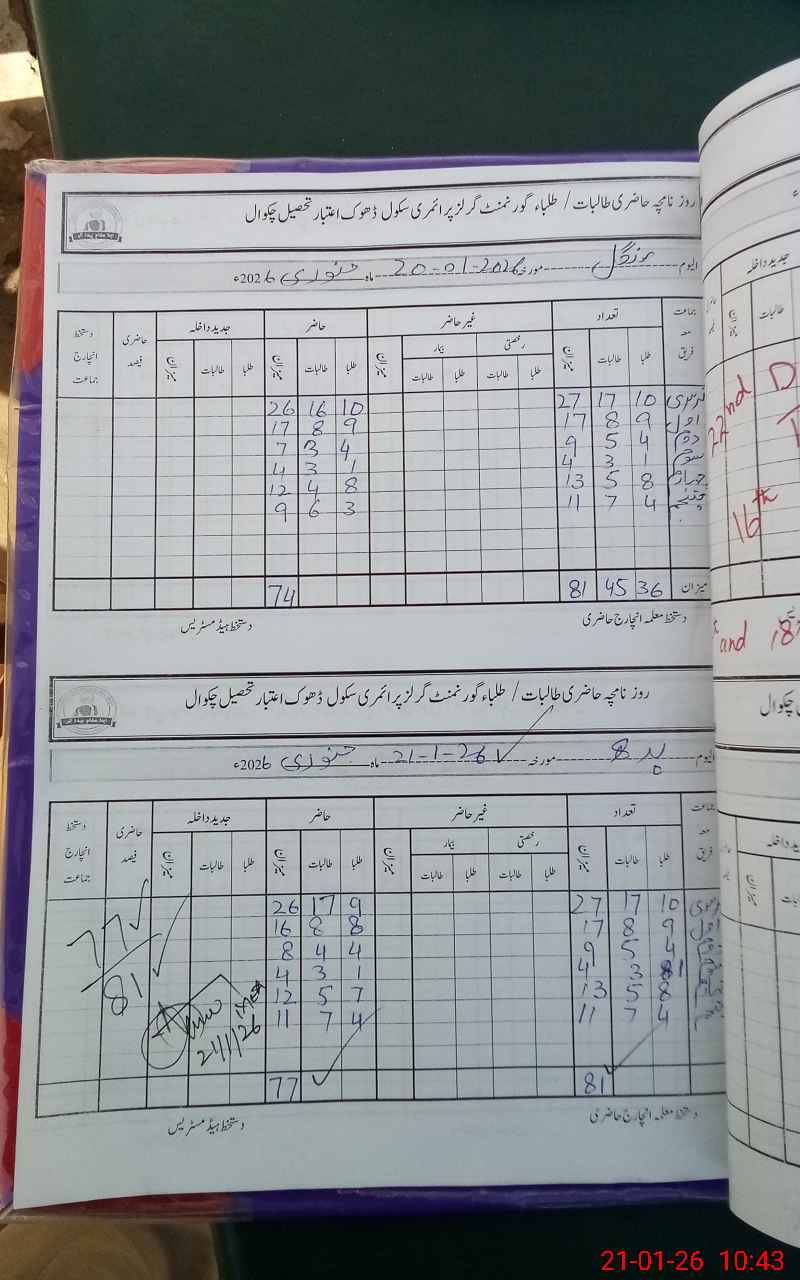 روز نامچہ حاضری طالبات / طلباء گورنمنٹ گرلز پرائمری سکول ڈھوک اعتبار تحصیل چکوال
الیوم منگل مورخہ 20-01-2026 ماہ جنوری 2026ء
جماعت معہ فریق تعداد غیر حاضر حاضر جدید داخلہ حاضری فیصد دستخط انچارج جماعت
رخصتی بیمار
طلبا طالبات میزان طلبا طالبات طلبا طالبات میزان طلبا طالبات میزان طلبا طالبات میزان
نرسری 10 17 27 10 16 26
اول 9 8 17 9 8 17
دوم 4 5 9 4 3 7
سوم 1 3 4 1 3 4
چہارم 8 5 13 8 4 12
پنجم 4 7 11 3 6 9
میزان 36 45 81 74
دستخط معلمہ انچارج حاضری دستخط ہیڈ مسٹریس
روز نامچہ حاضری طالبات / طلباء گورنمنٹ گرلز پرائمری سکول ڈھوک اعتبار تحصیل چکوال
الیوم بدھ مورخہ 21-1-26 ماہ جنوری 2026ء
جماعت معہ فریق تعداد غیر حاضر حاضر جدید داخلہ حاضری فیصد دستخط انچارج جماعت
رخصتی بیمار
طلبا طالبات میزان طلبا طالبات طلبا طالبات میزان طلبا طالبات میزان طلبا طالبات میزان
10 17 27 9 17 26
9 8 17 8 8 16
4 5 9 4 4 8
1 3 4 1 3 4
8 5 13 7 5 12
4 7 11 4 7 11
81 77
77
81
21/1/26
دستخط معلمہ انچارج حاضری دستخط ہیڈ مسٹریس
جدید داخلہ
طالبات میزان
22nd D
16th
and 18
چکوال
جدید داخلہ
میزان
21-01-26 10:43